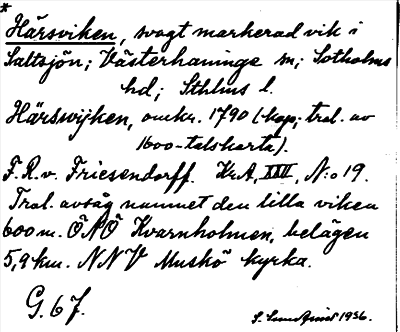 *
Härsviken, svagt markerad vik i
Saltsjön; Västerhaninge sn; Sotholms
hd; Sthlms l.
Härswijken, omkr. 1790 (kop; trol. av
1600-talskarta).
F.R.v. Friesendorff. Kr.A, XXV, N:o 19.
Trol. avsåg namnet den lilla viken
600 m. ÖNÖ Kvarnholmen, belägen
5,9 km. NNV Muskö kyrka.
G. 67.
1936.